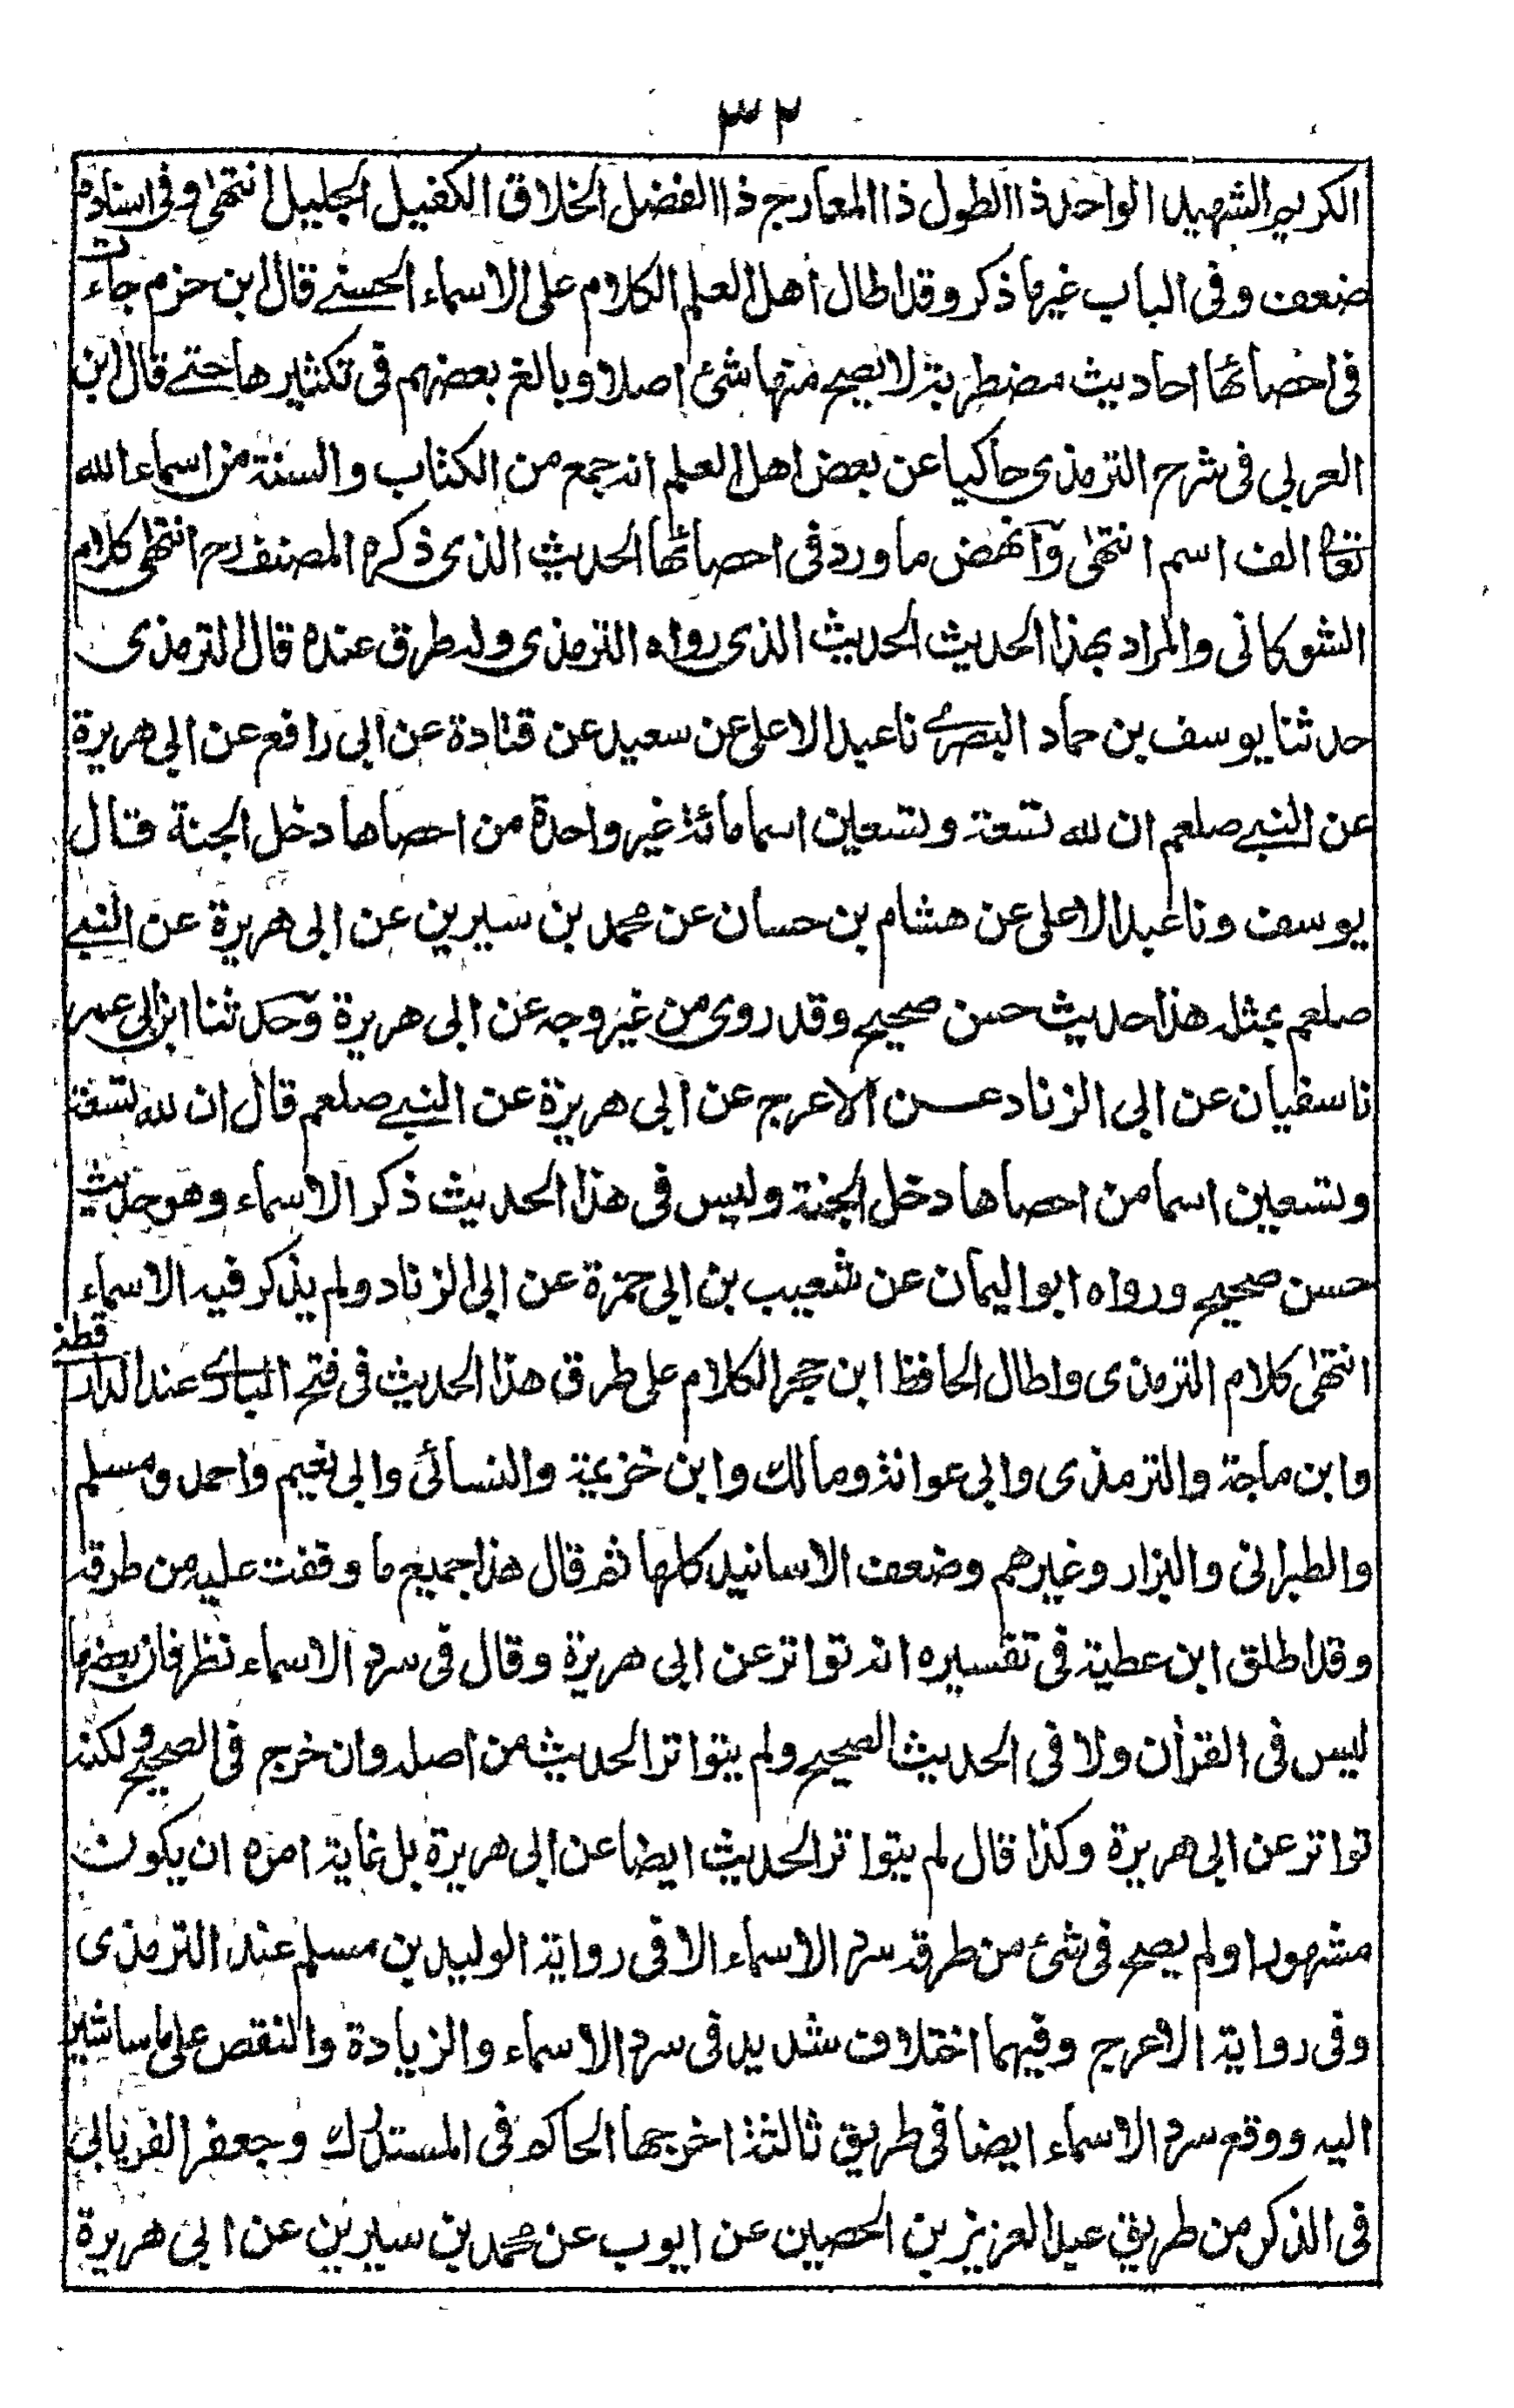 ٣٢
الكريم الشهيد الواحد ذا الطول ذا المعارج ذا الفضل الخلاق الكفيل الجليل انتهى وفى اسناده
ضعف وفى الباب غير ما ذكر وقد اطال اهل العلم الكلام على الاسماء الحسنے قال ابن حزم جاءت
فى احصائها احاديث مضطربة لا يصح منها شئ اصلا وبالغ بعضهم فى تكثيرها حتے قال ابن
العربى فى شرح الترمذى حاكيا عن بعض اهل العلم انه جمع من الكتاب والسنة من اسماء الله
تعالى الف اسم انتهى وآنهض ما ورد فى احصائها الحديث الذى ذكره المصنف رح انتهى كلام
الشوكانى والمراد بهذا الحديث الحديث الذى رواه الترمذى وله طرق عنده قال الترمذى
حدثنا يوسف بن حماد البصرے نا عبد الاعلى عن سعيد عن قتادة عن ابى رافع عن ابى هريرة
عن النبے صلعم ان لله تسعة وتسعين اسما مائة غير واحدة من احصاها دخل الجنة قال
يوسف ونا عبد الاعلى عن هشام بن حسان عن محمد بن سيرين عن ابى هريرة عن النبے
صلعم بمثله هذا حديث حسن صحيح وقد روى من غير وجه عن ابى هريرة وٓحدثنا ابن ابى عمر
نا سفيان عن ابى الزناد عن الاعرج عن ابى هريرة عن النبے صلعم قال ان لله تسعة
وتسعين اسما من احصاها دخل الجنة وليس فى هذا الحديث ذكر الاسماء وهو حديث
حسن صحيح ورواه ابو اليمان عن شعيب بن ابى حمزة عن ابى الزناد ولم يذكر فيه الاسماء
انتهى كلام الترمذى واطال الحافظ ابن حجر الكلام على طرق هذا الحديث فى فتح البارى عند الدارقطنے
وابن ماجة والترمذى وابى عوانة ومالك وابن خزيمة والنسائى وابى نعيم واحمد ومسلم
والطبرانى والبزار وغيرهم وضعف الاسانيد كلها ثم قال هذا جميع ما وقفت عليه من طرقه
وقد اطلق ابن عطية فى تفسيره انه تواتر عن ابى هريرة وقال فى سرد الاسماء نظر فان بعضها
ليس فى القرأن ولا فى الحديث الصحيح ولم يتواتر الحديث من اصله وان خرج فى الصحيح ولكنه
تواتر عن ابى هريرة وكذا قال لم يتواتر الحديث ايضا عن ابى هريرة بل غاية امره ان يكون
مشهورا ولم يصح فى شئ من طرقه سرد الاسماء الا فى رواية الوليد بن مسلم عند الترمذى
وفى رواية الاعرج وفيهما اختلاف شديد فى سرد الاسماء والزيادة والنقص على ما ساشير
اليه ووقع سرد الاسماء ايضا فى طريق ثالثة اخرجها الحاكم فى المستدرك وجعفر الفريابى
فى الذكر من طريق عبد العزيز بن الحصين عن ايوب عن محمد بن سيرين عن ابى هريرة